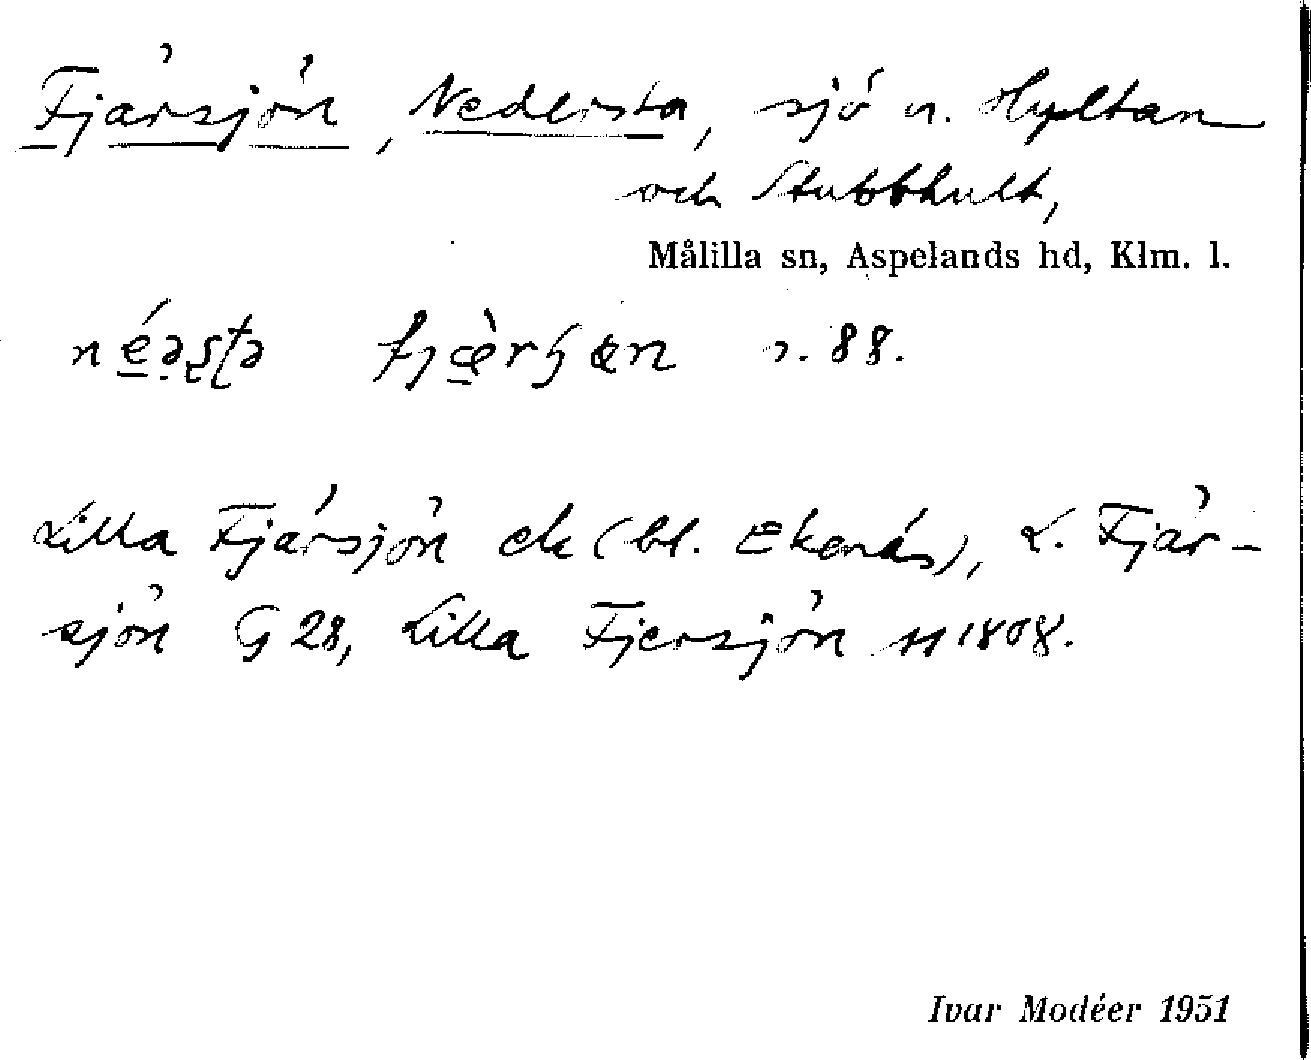 Fjärsjön, Nedersta, sjö n. Hyltan
och Stubbhult,
Målilla sn, Aspelands hd, Klm. l.
88.
Lilla Fjärsjön ek (bl. Ekenäs), L. Fjär-
sjön G 28, Lilla Fjersjön H 1808.
Ivar Modéer 1951